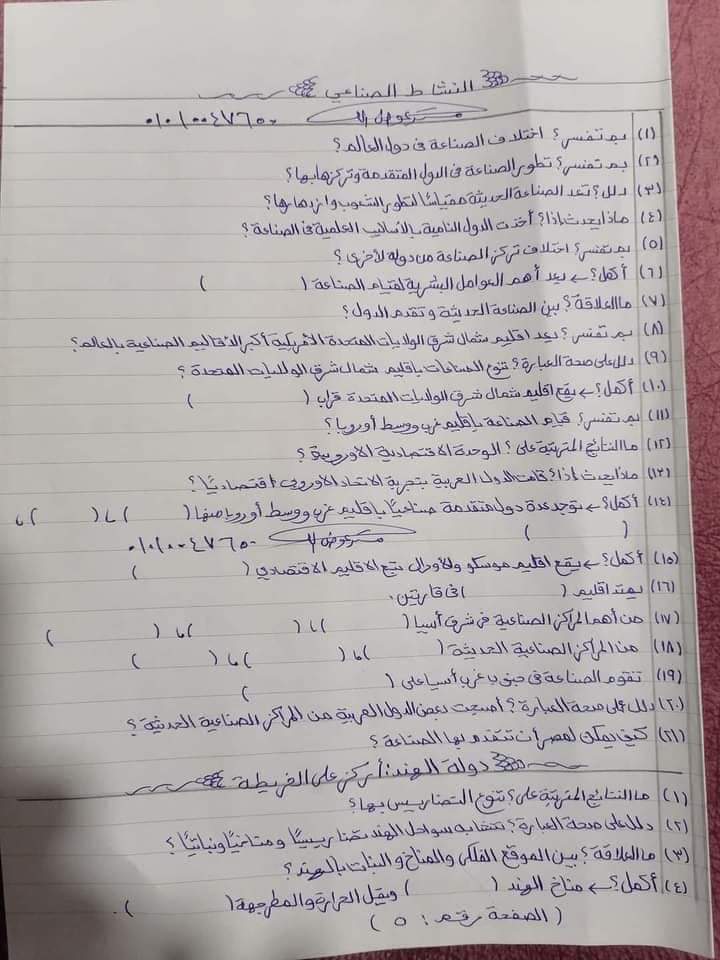 النشاط الصناعي
٠١٠١٠٠٤٧٦٥٠
(١) بم تفسر؟ اختلاف الصناعة فى دول العالم؟
(٢) بم تفسر؟ تطور الصناعة فى الدول المتقدمة وتركزها بها؟
(٣) دلل؟ تعد الصناعة الحديثة مقياسًا لتطور الشعوب وازدهارها؟
(٤) ماذا يحدث إذا؟ أخذت الدول النامية بالأساليب العلمية فى الصناعة؟
(٥) بم تفسر؟ اختلاف تركز الصناعة من دولة لأخرى؟
(٦) أكمل؟ ← يعد أهم العوامل البشرية لقيام الصناعة ( )
(٧) ما العلاقة؟ بين الصناعة الحديثة وتقدم الدول؟
(٨) بم تفسر؟ يعد اقليم شمال شرق الولايات المتحدة الأمريكية أكبر الأقاليم الصناعية بالعالم؟
(٩) دلل على صحة العبارة؟ تنوع الصناعات بإقليم شمال شرق الولايات المتحدة؟
(١٠) أكمل؟ ← يقع اقليم شمال شرق الولايات المتحدة قرب ( )
(١١) بم تفسر؟ قيام الصناعة بإقليم غرب ووسط أوروبا؟
(١٢) ما النتائج المترتبة على؟ الوحدة الاقتصادية الأوروبية؟
(١٣) ماذا يحدث إذا؟ قامت الدول العربية بتجربة الاتحاد الأوروبى اقتصاديًا؟
(١٤) أكمل؟ ← توجد عدة دول متقدمة صناعيًا بإقليم غرب ووسط أوروبا منها ( )، ( )،
( ) ٠١٠١٠٠٤٧٦٥٠
(١٥) أكمل؟ ← يقع اقليم موسكو والأورال يتبع الاقليم الاقتصادي ( )
(١٦) يمتد اقليم ( ) فى قارتين.
(١٧) من أهم المراكز الصناعية فى شرق أسيا ( )، ( )، ( )
(١٨) من المراكز الصناعية الحديثة ( )، ( )، ( )
(١٩) تقوم الصناعة فى جنوب غرب أسيا على ( )
(٢٠) دلل على صحة العبارة؟ أصبحت بعض الدول العربية من المراكز الصناعية الحديثة؟
(٢١) كيف يمكن لمصر أن تتقدم بها الصناعة؟
دولة الهند: أركز على الخريطة
(١) ما النتائج المترتبة على؟ تنوع التضاريس بها؟
(٢) دلل على صحة العبارة؟ تتشابه سواحل الهند تضاريسيًا ومناخيًا ونباتيًا؟
(٣) ما العلاقة؟ بين الموقع الفلكى والمناخ والنبات بالهند؟
(٤) أكمل؟ ← مناخ الهند ( ) ويقل الحرارة والمطر جهة ( ).
(الصفحة رقم: ٥)